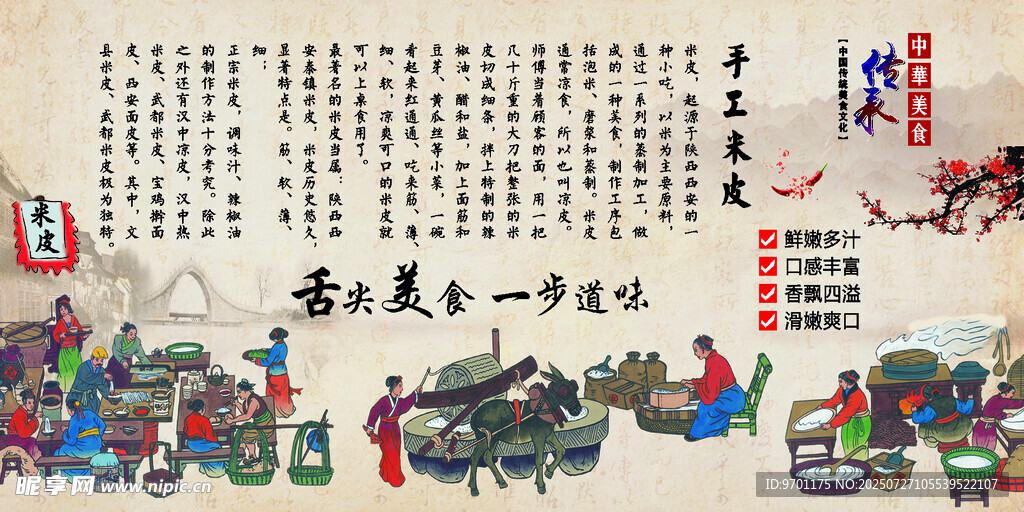 中華美食
传承
【中国传统美食文化】
手工米皮
米皮，起源于陕西西安的一
种小吃，以米为主要原料，
通过一系列的蒸制加工，做
成的一种美食，制作工序包
括泡米、磨浆和蒸制。米皮
通常凉食，所以也叫凉皮。
师傅当着顾客的面，用一把
几十斤重的大刀把整张的米
皮切成细条，拌上特制的辣
椒油、醋和盐，加上面筋和
豆芽、黄瓜丝等小菜，一碗
看起来红通通、吃来筋、薄、
细、软，凉爽可口的米皮就
可以上桌食用了。
最著名的米皮当属：陕西西
安秦镇米皮，米皮历史悠久，
显著特点是。筋、软、薄、
细；
正宗米皮，调味汁、辣椒油
的制作方法十分考究。除此
之外还有汉中凉皮，汉中热
米皮、武都米皮、宝鸡擀面
皮、西安面皮等。其中，文
县米皮、武都米皮极为独特。
米皮
鲜嫩多汁
口感丰富
香飘四溢
滑嫩爽口
舌尖美食 一步道味
昵享网 www.nipic.cn
ID:9701175 NO:20250727105539522107